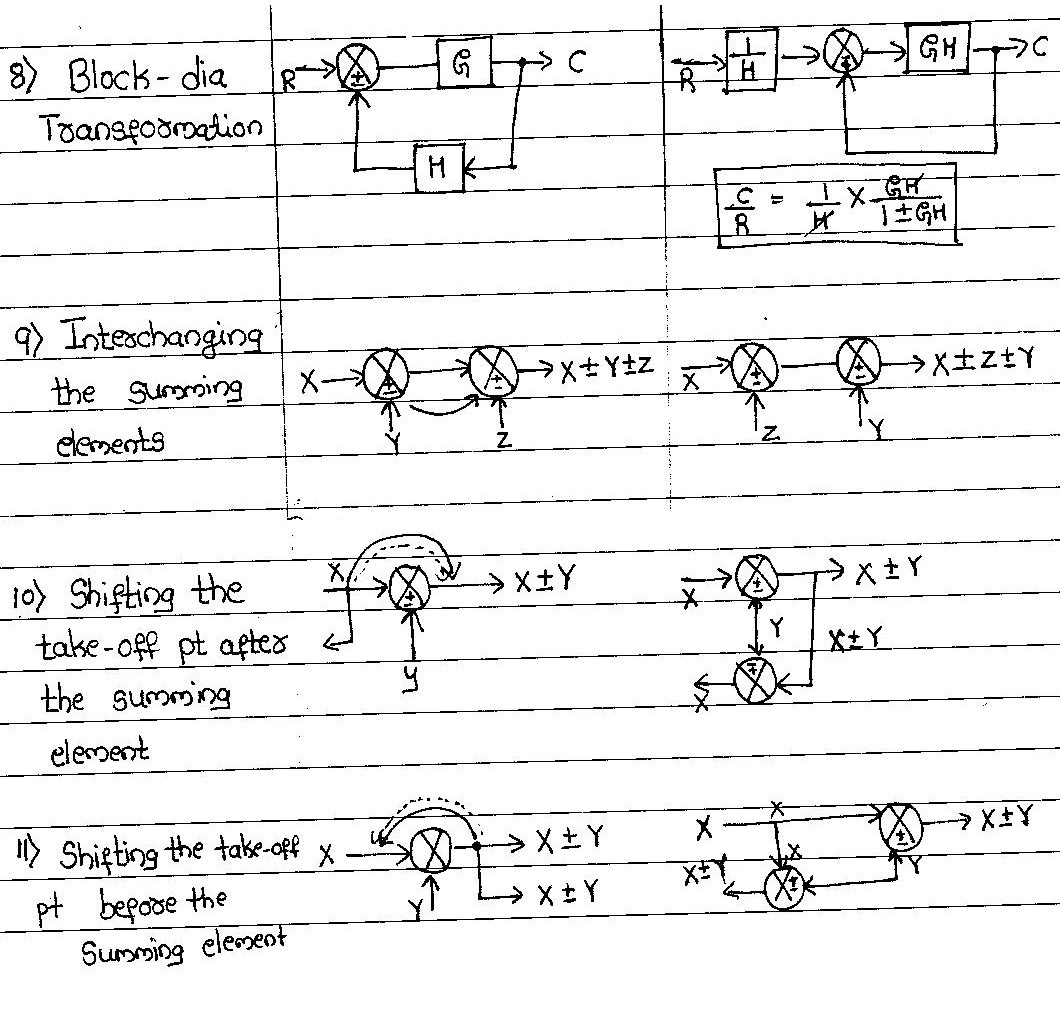 8) Block-dia
Transformation
R ± G C
H
R 1/H ± GH C
C/R = 1/H × GH/1±GH
9) Interchanging
the summing
elements
X ± ± X±Y±Z
Y Z
X ± ± X±Z±Y
Z Y
10) Shifting the
take-off pt after
the summing
element
X ± X±Y
Y
X ± X±Y
Y X±Y
∓
X
11) Shifting the take-off
pt before the
Summing element
X X±Y
Y X±Y
X X ± X±Y
X±Y X ± Y